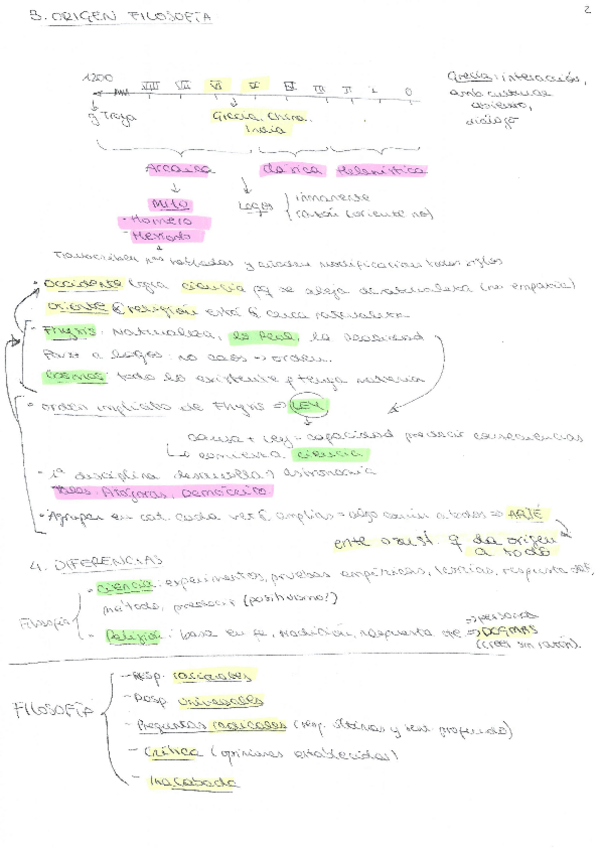 3. ORIGEN FILOSOFÍA
2
1200 VIII VII VI V IV III II I 0
Grecia: interacción,
culturas
comercio,
diálogo
g Troya
Grecia, China,
India
Arcaica clásica Helenística
Mito
- Homero
- Hesíodo
Logos { inmanente
razón (oriente no)
Transcriben y añaden modificaciones todos siglos
- occidente logra ciencia pq se aleja de naturaleza (no empatía)
oriente religión está cerca naturaleza
- Physis: Naturaleza, lo real, la realidad
Paso a logos: no caos → orden.
Cosmos: todo lo existente q tenga materia
- orden implícito de Physis ⇒ LEY
causa + ley = capacidad predecir consecuencias
comienza ciencia
- 1ª disciplina desarrollada astronomía
Tales, Pitágoras, Demócrito
- Agrupar en cat. cada vez + amplias = algo común a todos ⇒ ARJÉ
ente o sust. q da origen
a todo
4. DIFERENCIAS
Filosofía
- Ciencia: experimentos, pruebas empíricas, teorías, respuesta def,
método, predecir (positivismo!)
- Religión: base en fe, tradición, respuesta def ⇒ DOGMAS
(creer sin razón).
FILOSOFÍA
- Resp. racionales
- Resp. universales
- Preguntas radicales (resp. últimas y más profundo)
- Crítica (opiniones establecidas)
- Inacabada